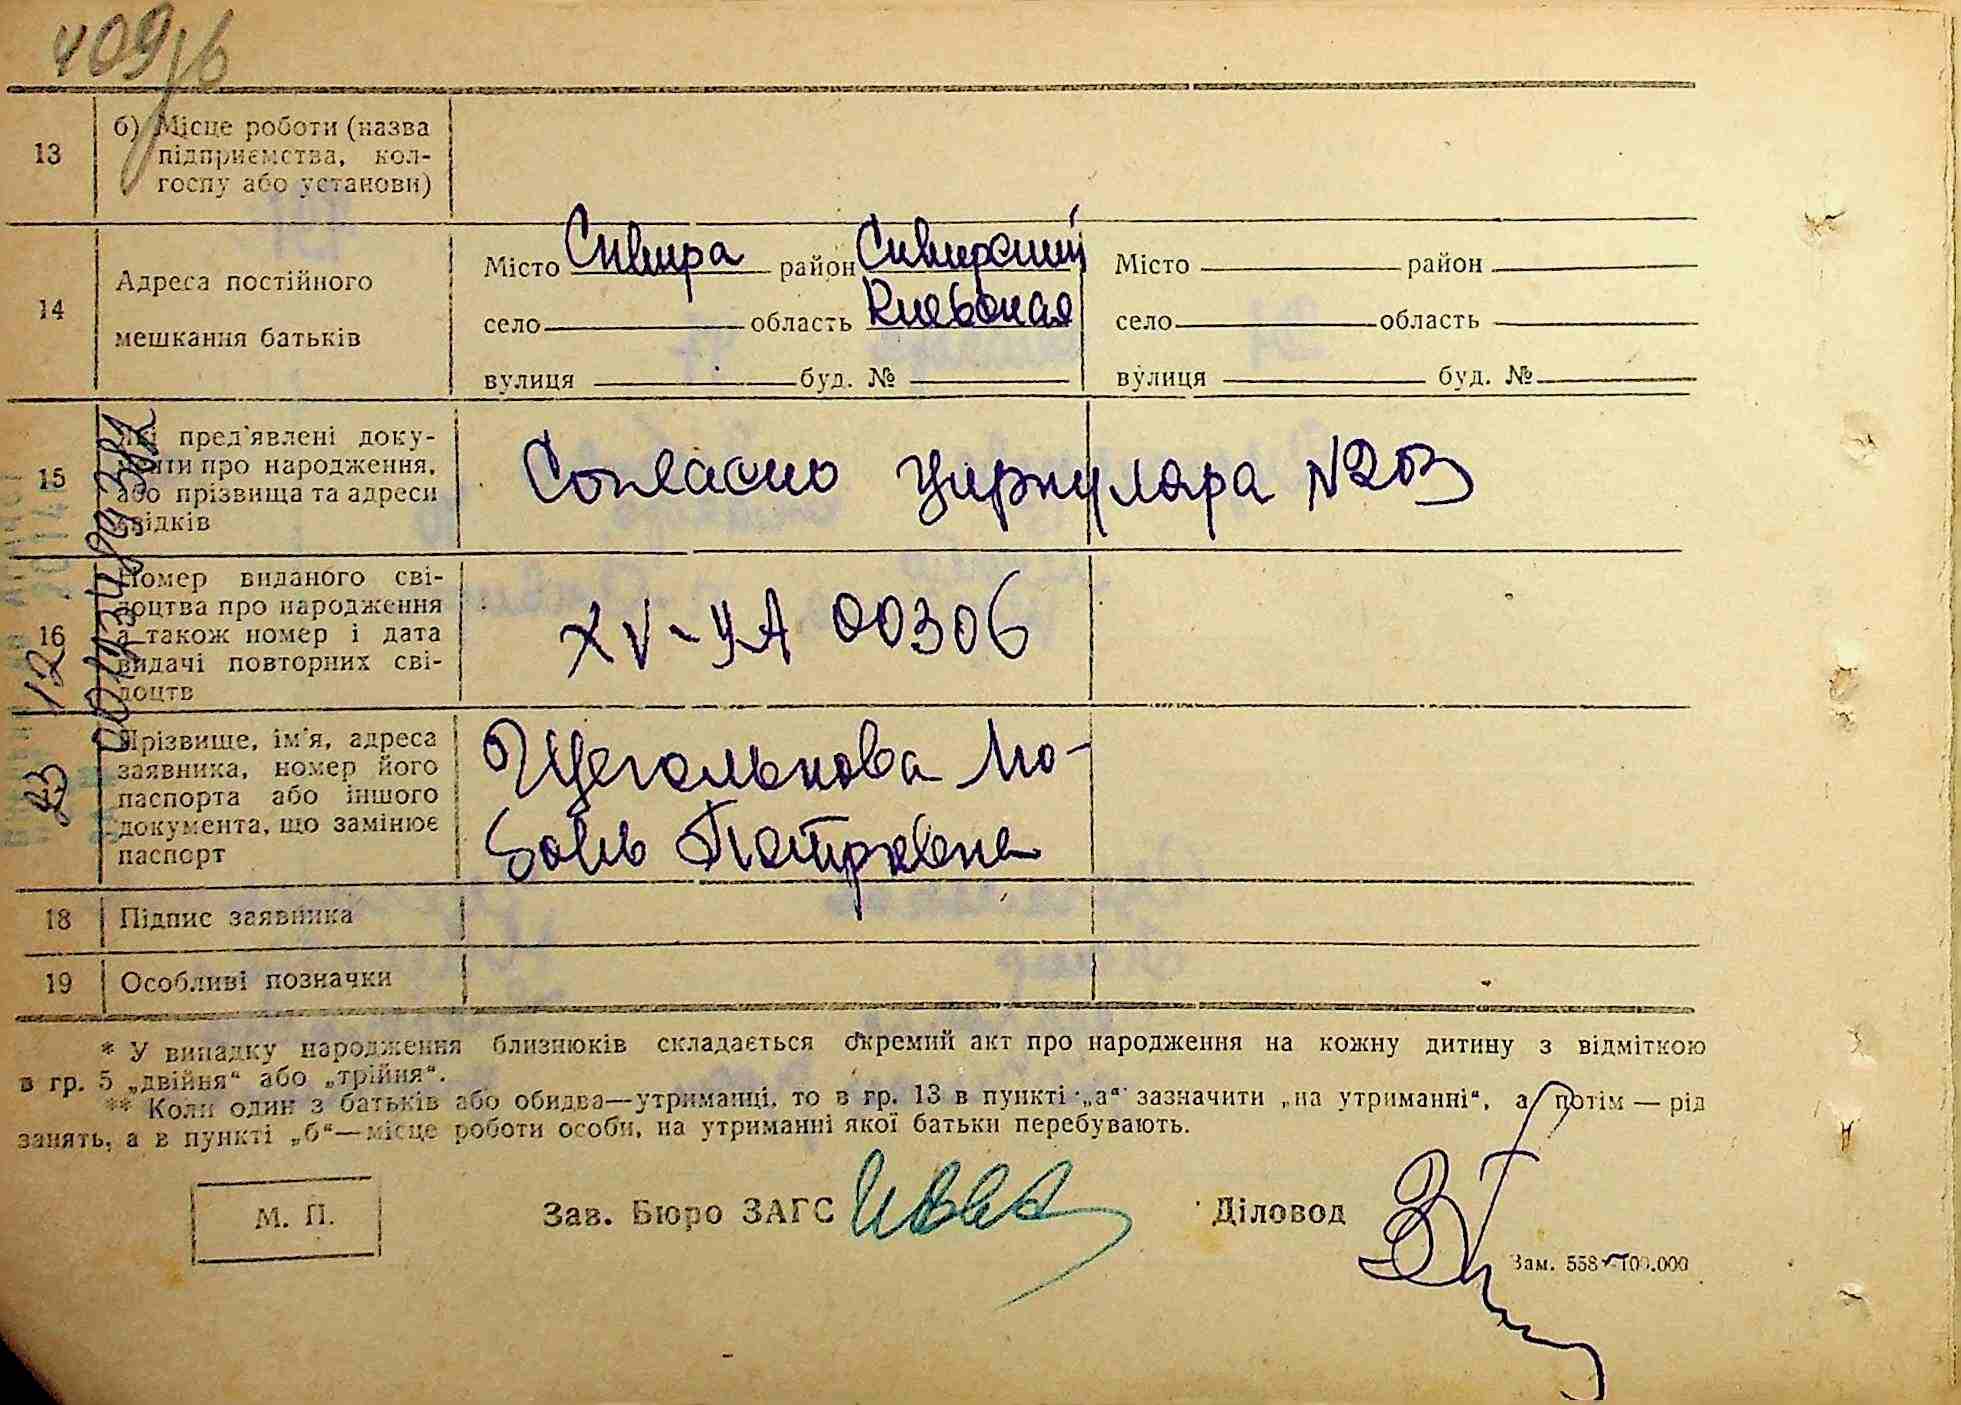 409
13
б) Місце роботи (назва
підприємства, кол-
госпу або установи)
14
Адреса постійного
мешкання батьків
Місто Сквира район Сквирский
село область Киевская
вулиця буд. №
Місто район
село область
вулиця буд. №
15
Які пред'явлені доку-
менти про народження,
або прізвища та адреси
свідків
Согласно циркуляра №203
16
Номер виданого сві-
доцтва про народження
а також номер і дата
видачі повторних сві-
доцтв
XV-УА 00306
Прізвище, ім'я, адреса
заявника, номер його
паспорта або іншого
документа, що замінює
паспорт
Щегольнова Лю-
бовь Петровна
18
Підпис заявника
19
Особливі позначки
* У випадку народження близнюків складається окремий акт про народження на кожну дитину з відміткою
в гр. 5 „двійня“ або „трійня“.
** Коли один з батьків або обидва—утриманці, то в гр. 13 в пункті „а“ зазначити „на утриманні“, а потім — рід
занять, а в пункті „б“—місце роботи особи, на утриманні якої батьки перебувають.
М. П.
Зав. Бюро ЗАГС
Діловод
Зам. 558—100.000